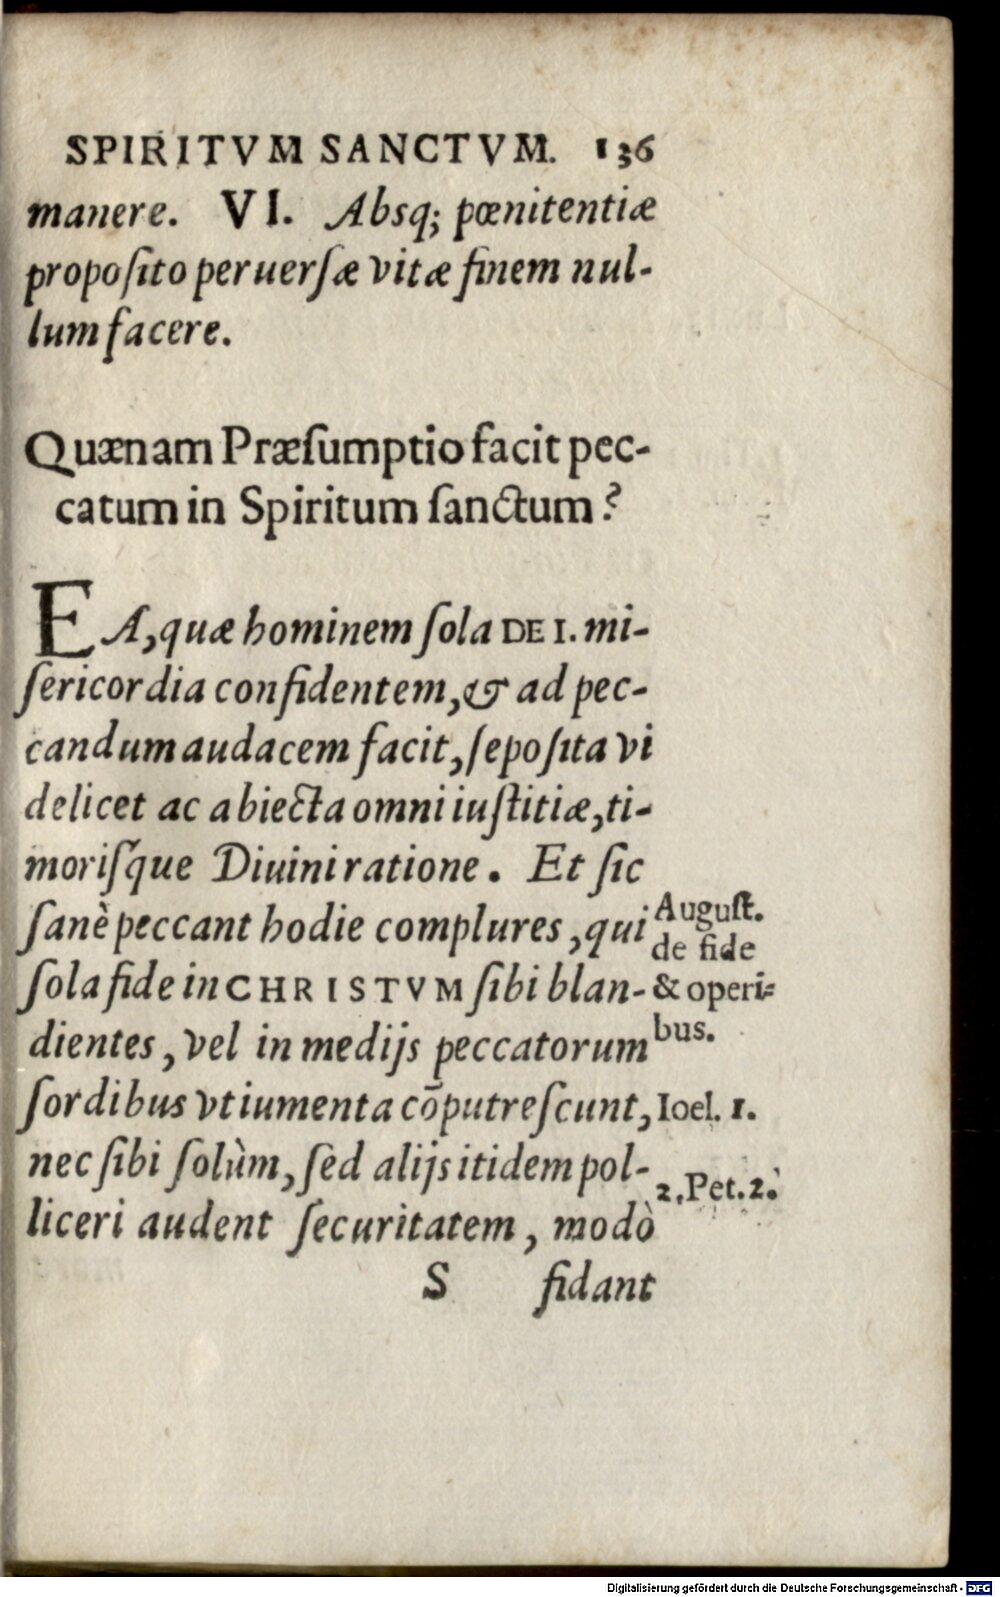 SPIRITVM SANCTVM. 136
manere. VI. Absq; pœnitentiæ
propoſito peruerſæ vitæ finem nul-
lum facere.
Quænam Præſumptio facit pec-
catum in Spiritum ſanctum?
EA, quæ hominem ſola DEI. mi-
ſericordia confidentem, & ad pec-
candum audacem facit, ſepoſita vi
delicet ac abiecta omni iuſtitiæ, ti-
moriſque Diuini ratione. Et ſic
ſanè peccant hodie complures, qui
ſola fide in CHRISTVM ſibi blan-
dientes, vel in medijs peccatorum
ſordibus vt iumenta cōputreſcunt,
nec ſibi ſolùm, ſed alijs itidem pol-
liceri audent ſecuritatem, modò
S fidant
Auguſt.
de fide
& operi=
bus.
Ioel. 1.
2. Pet. 2.
Digitalisierung gefördert durch die Deutsche Forschungsgemeinschaft - DFG